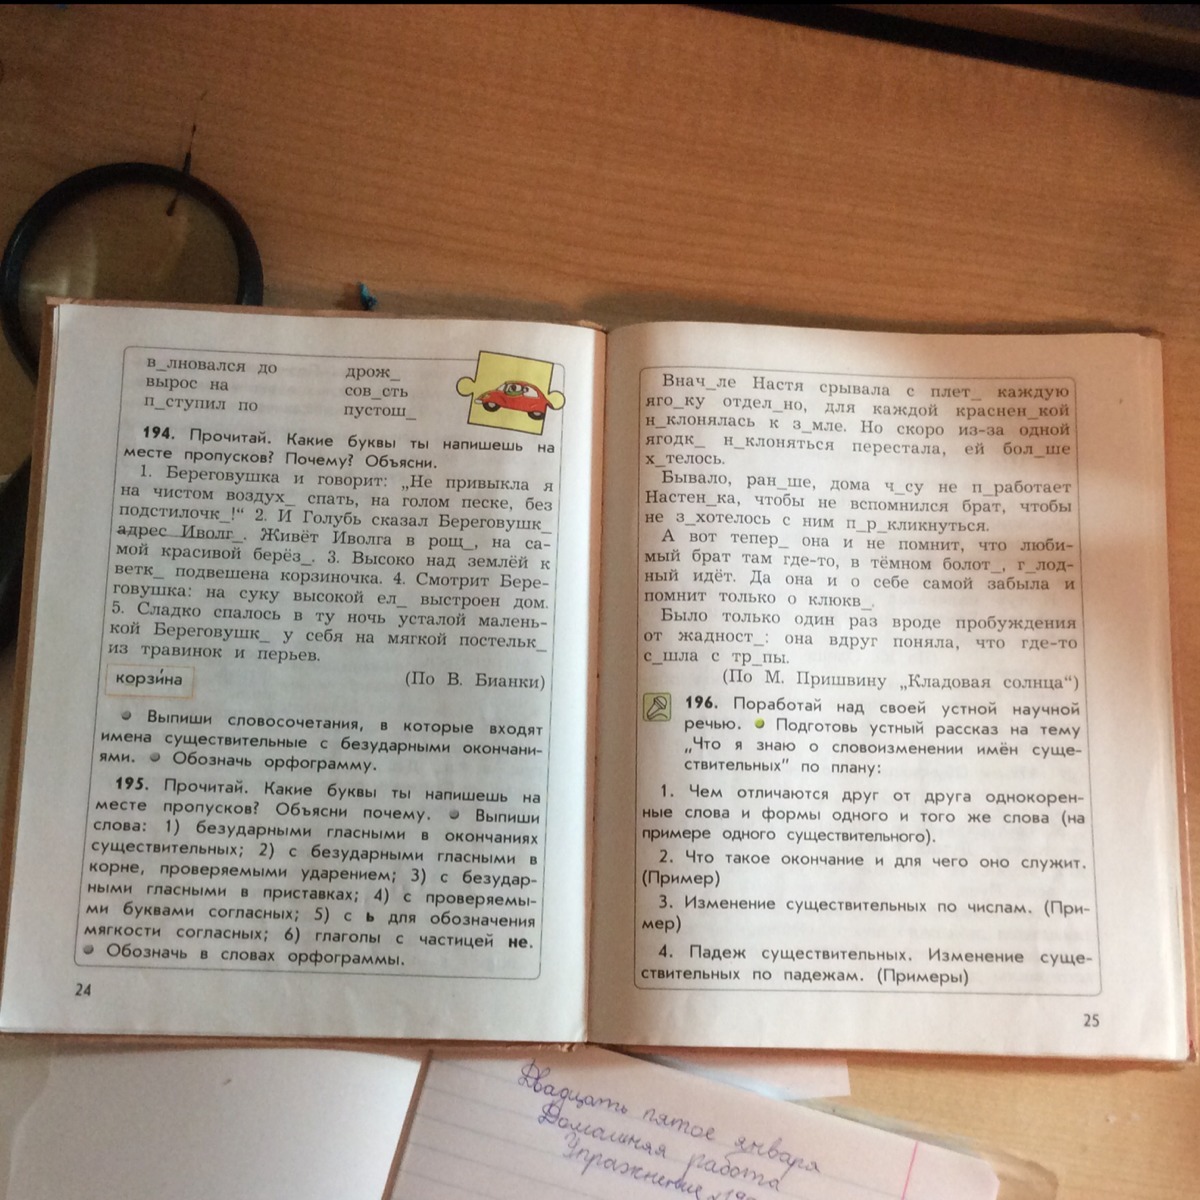 в_лновался до дрож_
вырос на сов_сть
п_ступил по пустош_
194. Прочитай. Какие буквы ты напишешь на
месте пропусков? Почему? Объясни.
1. Береговушка и говорит: „Не привыкла я
на чистом воздух_ спать, на голом песке, без
подстилочк_!“ 2. И Голубь сказал Береговушк_
адрес Иволг_. Живёт Иволга в рощ_, на са-
мой красивой берёз_. 3. Высоко над землёй к
ветк_ подвешена корзиночка. 4. Смотрит Бере-
говушка: на суку высокой ел_ выстроен дом.
5. Сладко спалось в ту ночь усталой малень-
кой Береговушк_ у себя на мягкой постельк_
из травинок и перьев.
корзи́на (По В. Бианки)
Выпиши словосочетания, в которые входят
имена существительные с безударными окончани-
ями. Обозначь орфограмму.
195. Прочитай. Какие буквы ты напишешь на
месте пропусков? Объясни почему. Выпиши
слова: 1) безударными гласными в окончаниях
существительных; 2) с безударными гласными в
корне, проверяемыми ударением; 3) с безудар-
ными гласными в приставках; 4) с проверяемы-
ми буквами согласных; 5) с ь для обозначения
мягкости согласных; 6) глаголы с частицей не.
Обозначь в словах орфограммы.
24
Внач_ле Настя срывала с плет_ каждую
яго_ку отдел_но, для каждой краснен_кой
н_клонялась к з_мле. Но скоро из-за одной
ягодк_ н_клоняться перестала, ей бол_ше
х_телось.
Бывало, ран_ше, дома ч_су не п_работает
Настен_ка, чтобы не вспомнился брат, чтобы
не з_хотелось с ним п_р_кликнуться.
А вот тепер_ она и не помнит, что люби-
мый брат там где-то, в тёмном болот_, г_лод-
ный идёт. Да она и о себе самой забыла и
помнит только о клюкв_.
Было только один раз вроде пробуждения
от жадност_: она вдруг поняла, что где-то
с_шла с тр_пы.
(По М. Пришвину „Кладовая солнца“)
196. Поработай над своей устной научной
речью. Подготовь устный рассказ на тему
„Что я знаю о словоизменении имён суще-
ствительных” по плану:
1. Чем отличаются друг от друга однокорен-
ные слова и формы одного и того же слова (на
примере одного существительного).
2. Что такое окончание и для чего оно служит.
(Пример)
3. Изменение существительных по числам. (При-
мер)
4. Падеж существительных. Изменение суще-
ствительных по падежам. (Примеры)
25
Двадцать пятое января
Домашняя работа
Упражнение